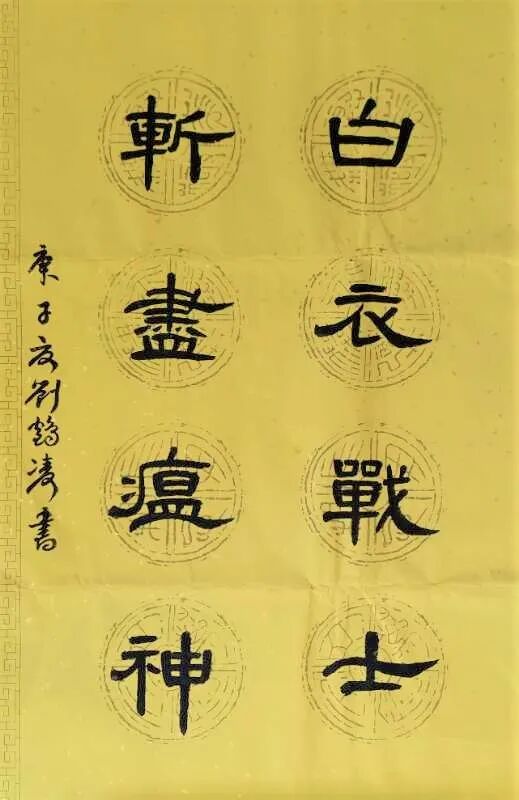 白衣戰士
斬盡瘟神
庚子夏劉鶴凌書